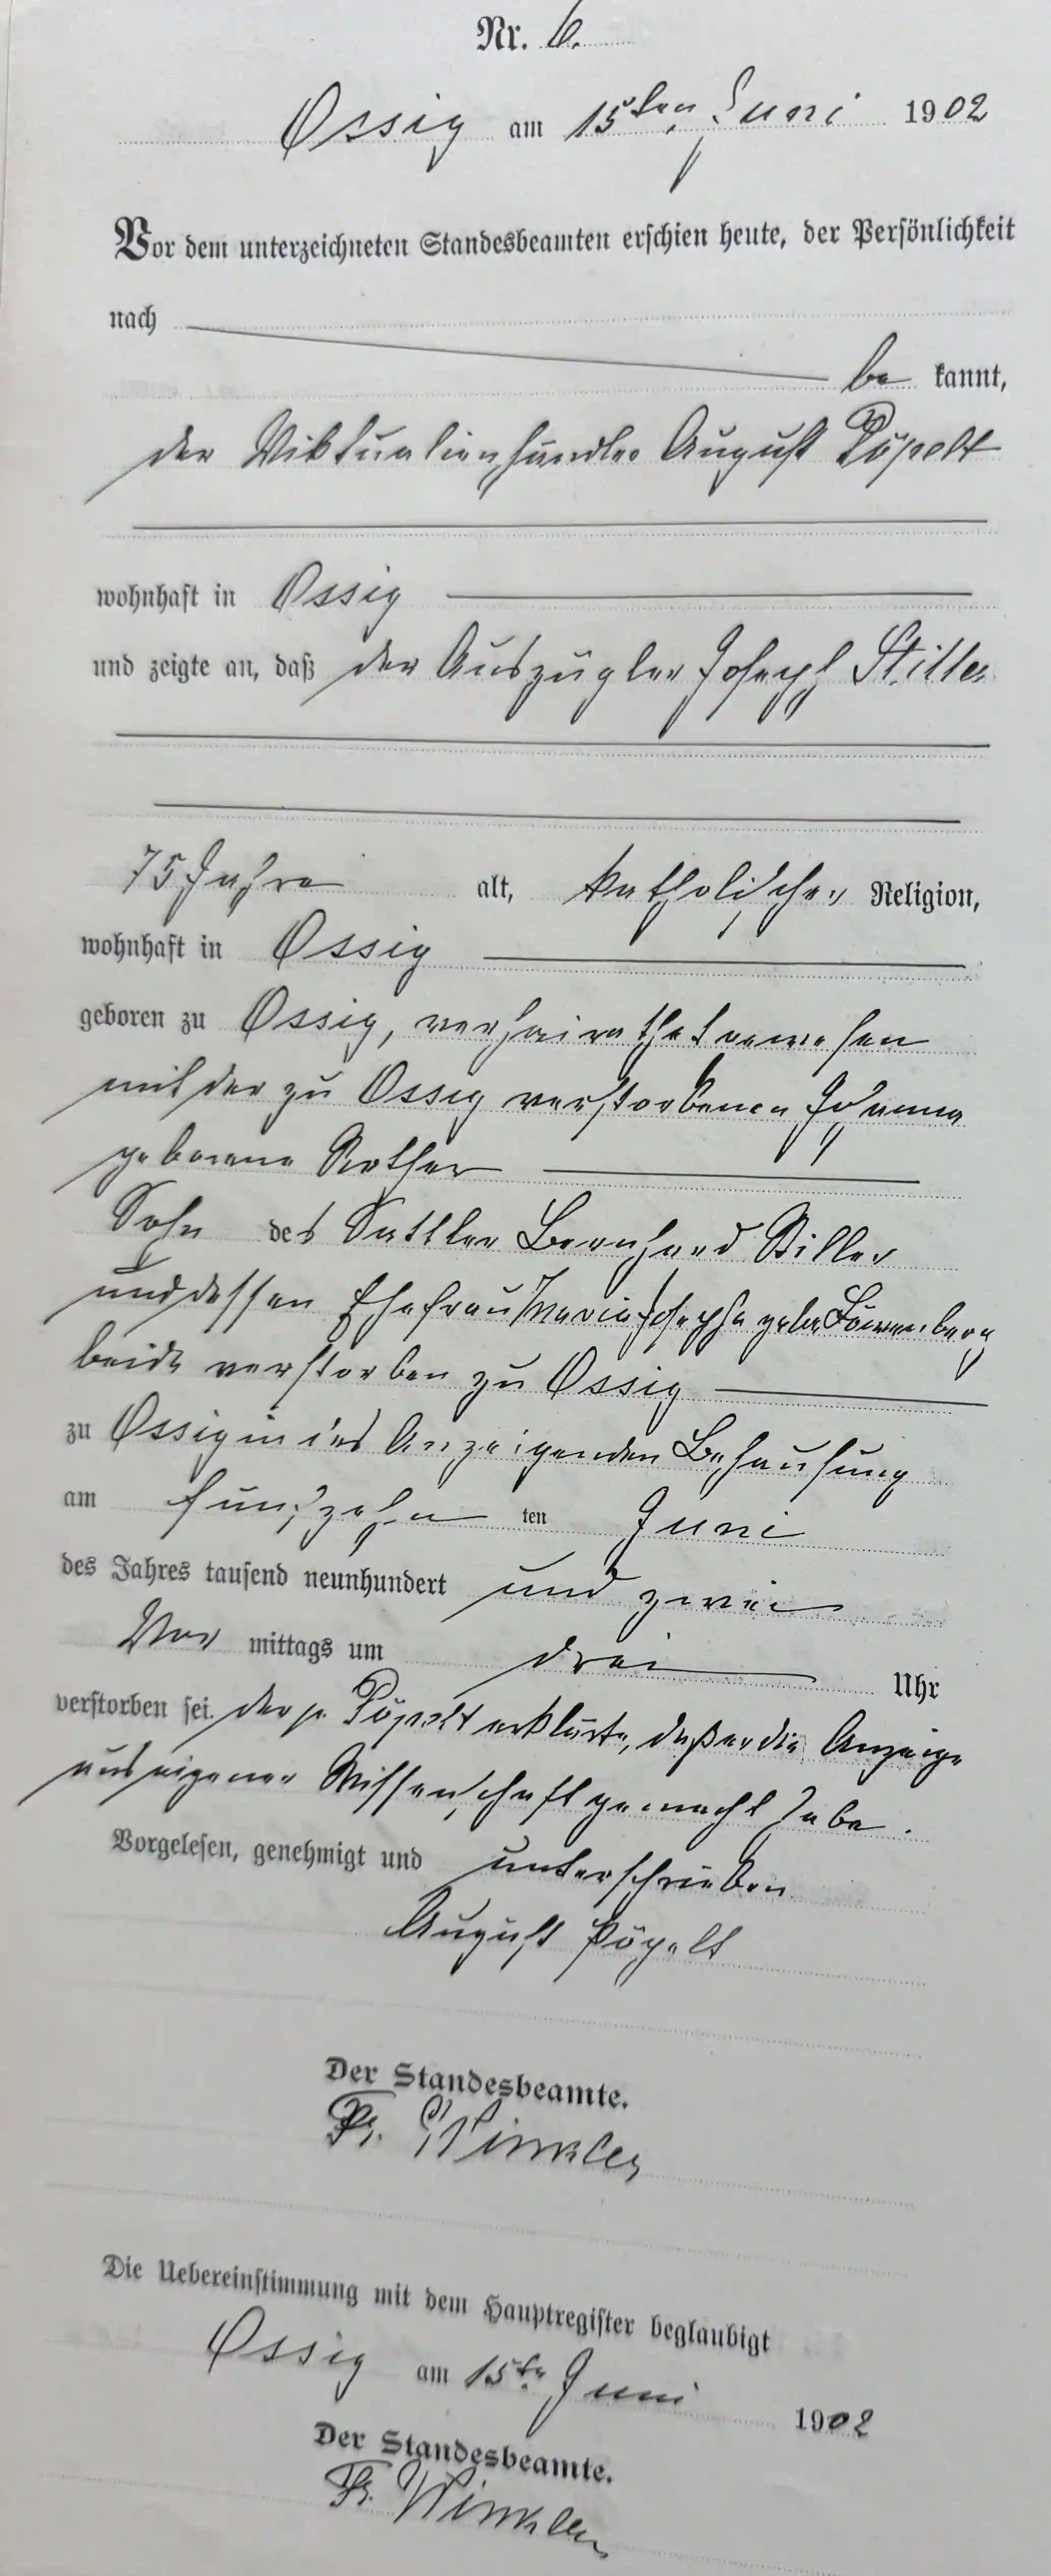 Nr. 6.
Ossig am 15ten Juni 1902
Vor dem unterzeichneten Standesbeamten erschien heute, der Persönlichkeit
nach
be kannt,
der Viktualienhändler August Pöpelt
wohnhaft in Ossig
und zeigte an, daß der Auszügler Joseph Stiller
75 Jahre alt, katholischer Religion,
wohnhaft in Ossig
geboren zu Ossig, verheirathet gewesen
mit der zu Ossig verstorbenen
geborene Rother
Sohn des Sattler Bernhard Stiller
und dessen Ehefrau Maria Josepha geb. Löwenberg
beide verstorben zu Ossig
zu Ossig in des Anzeigenden Behausung
am fünfzehn ten Juni
des Jahres tausend neunhundert und zwei
Vor mittags um drei Uhr
verstorben sei. der p. Pöpelt erklärte, daß er die Anzeige
aus eigener Wissenschaft gemacht habe.
Vorgelesen, genehmigt und unterschrieben
August Pöpelt
Der Standesbeamte.
Fr. Winkler
Die Uebereinstimmung mit dem Hauptregister beglaubigt
Ossig am 15te Juni 1902
Der Standesbeamte.
Fr. Winkler